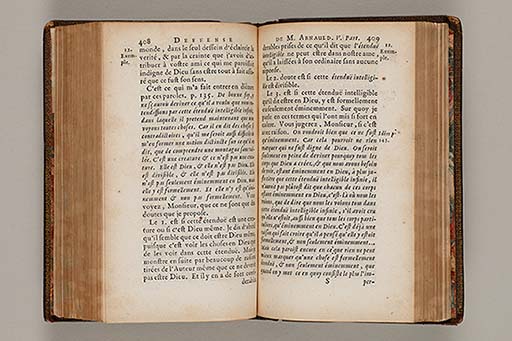 408 DEFFENSE
12. Exem-
ple.
monde, dans le seul dessein d'éclaircir la
verité, & par la crainte que j'avois d'at-
tribuer à vostre ami ce qui me paroissoit
indigne de Dieu sans estre tout à fait assu-
ré que ce fust son sens.
C'est ce qui m'a fait entrer en doute
par ces paroles. p. 135. De bonne foy, je
ne sçaurois deviner ce qu'il a voulu que nous en-
tendissions par cette étenduë intelligible infinie,
dans laquelle il pretend maintenant que nous
voyons toutes choses. Car il en dit des choses si
contradictoires, qu'il me seroit aussi difficile de
m'en former une notion distincte sur ce qu'il en
dit, que de comprendre une montagne sans val-
lée. C'est une creature & ce n'est pas une crea-
ture. Elle est Dieu, & elle n'est pas Dieu. Elle
est divisible, & elle n'est pas divisible. Elle
n'est pas seulement éminemment en Dieu, mais
elle y est formellement. Et elle n'y est qu'emi-
nemment & non pas formellement. Vous
voyez, Monsieur, que ce ne sont que des
doutes que je propose.
Le 1. est si cette étenduë est une crea-
ture ou si c'est Dieu même. Je dis d'abord
qu'il semble que ce doit estre Dieu même,
puisque c'est voir les choses en Dieu que
de les voir dans cette étenduë. Mais je
monstre en suite par beaucoup de raisons
tirées de l'Auteur même que ce ne devroit
pas estre Dieu. Et il y en a de fort consi-
derables
DE M. ARNAULD. V. PART. 409
12.
Exem-
ple.
derables prises de ce qu'il dit que l'étenduë
intelligible ne peut estre dans nostre ame,
qu'il a laissées à son ordinaire sans aucune
réponse.
Le 2. doute est si cette étenduë intelligi-
ble est divisible.
Le 3. est si cette étenduë intelligible
qu'il dit estre en Dieu, y est formellement
ou seulement éminemment. Sur quoy je
parle en ces termes qui l'ont mis si fort en
colere. Vous jugerez, Monsieur, si c'est
avec raison. On voudroit bien que ce ne fust
qu'éminemment. Car cela pourroit ne rien
marquer qui ne fust digne de Dieu. On seroit
seulement en peine de deviner pourquoy tous les
corps que Dieu a créez, & que nous avons besoin
de voir, estant éminemment en Dieu, à plus ju-
ste titre que cette étenduë intelligible infinie, il
n'auroit pas plûtost dit que chacun de ces corps
estant éminemment en Dieu, c'est-là où nous les
voions, que de dire que nous les voions tous dans
cette étenduë intelligible infinie, s'il avoit cru
qu'elle n'est, aussi bien que tous les corps parti-
culiers, qu'éminemment en Dieu. C'est déjà une
raison qui fait croire qu'il a pensé qu'elle y est for-
mellement, & non seulement éminemment...
Mais cela paroist encore en ce que rien ne peut
mieux marquer qu'une chose est formellement
étenduë, & non seulement éminemment, que
quand on y met ce en quoy consiste le plus l'im-
S per-